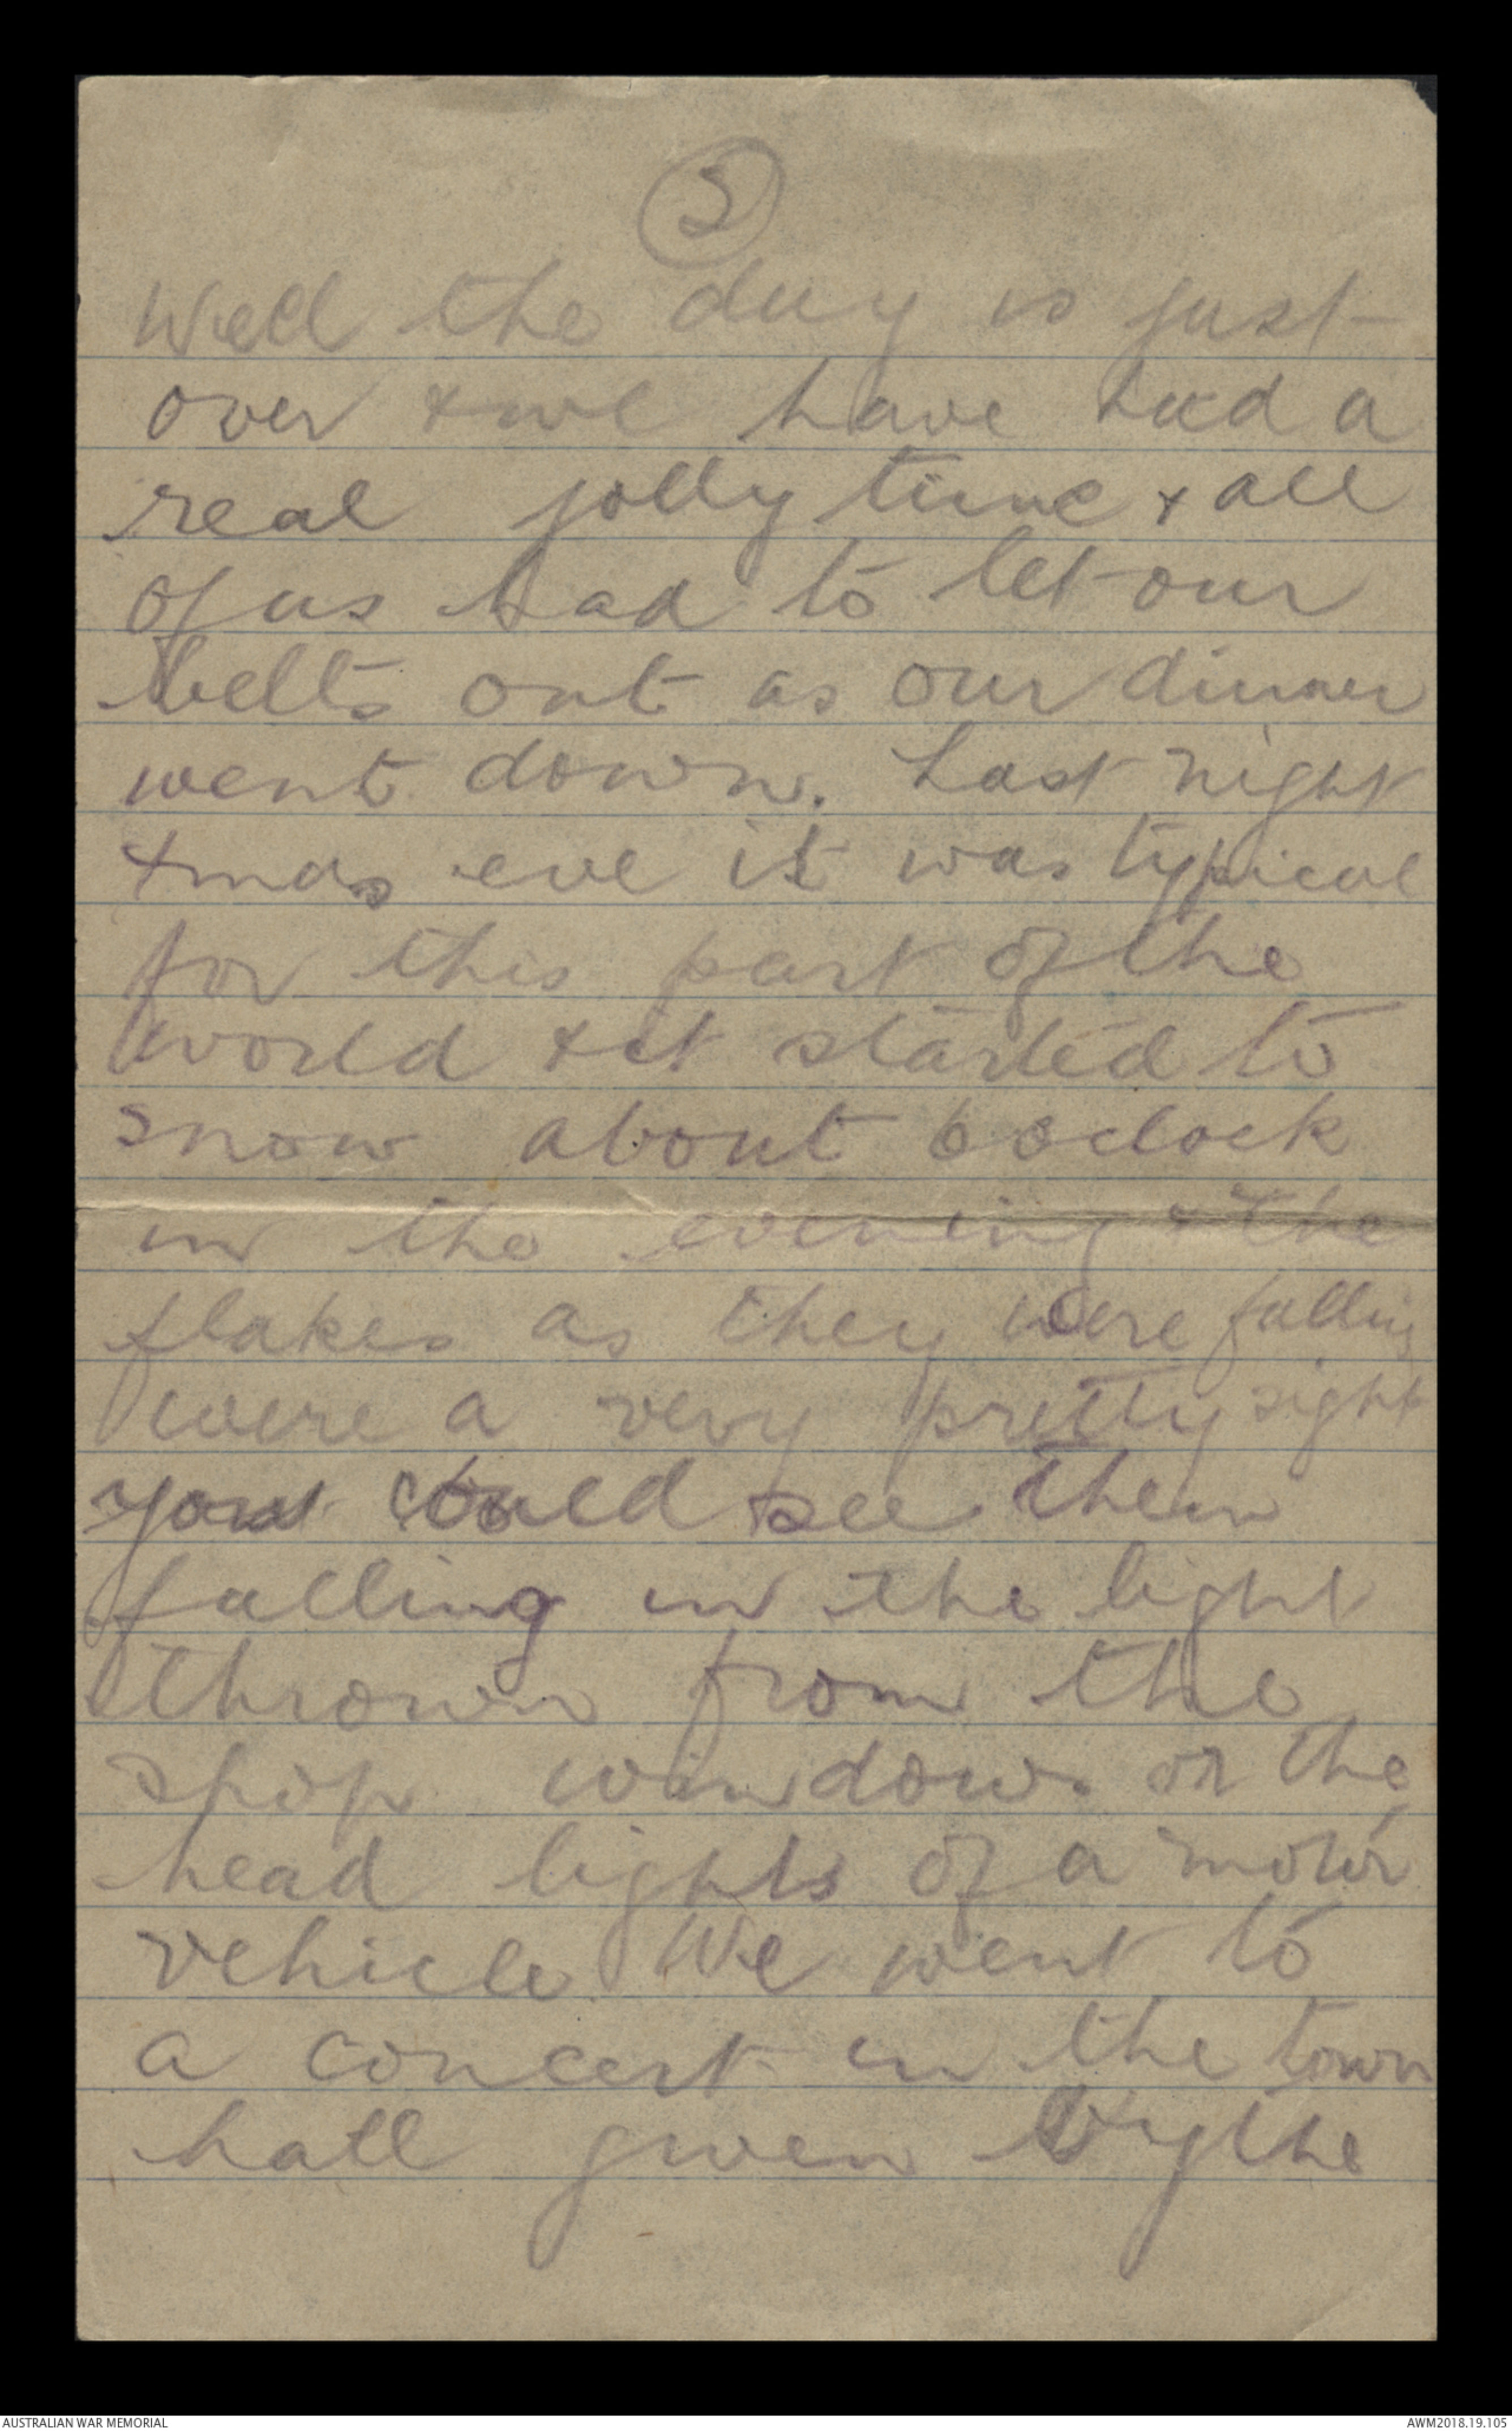 2
Well the day is just
over & we have had a
real jolly time & all
of us had to let our
belts out as our dinner
went down. Last night
Xmas eve it was typical
for this part of the
world & it started to
snow about 6 oclock
in the evening & the
flakes as they were falling
were a very pretty sight
you could see them
falling in the light
thrown from the
shop windows or the
head lights of a motor
vehicle. We went to
a concert in the town
hall given by the
AUSTRALIAN WAR MEMORIAL
AWM2018.19.105